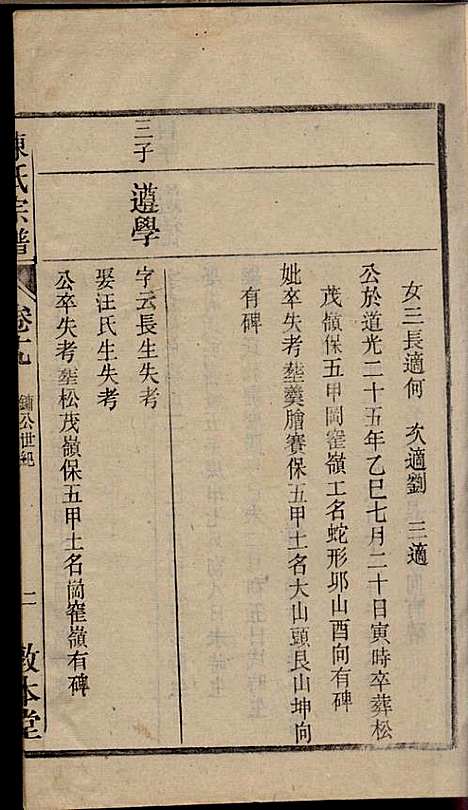 女三長適何　次適劉　三適
公於道光二十五年乙巳七月二十日寅時卒葬松
茂嶺保五甲岡窑嶺工名蛇形夘山酉向有碑
妣卒失考塟羹膾賽保五甲土名大山頭艮山坤向
有碑
三子
遵學
字云長生失考
娶汪氏生失考
公卒失考塟松茂嶺保五甲土名崗窑嶺有碑
陳氏宗譜
卷十九
鏞公世紀
二
敦本堂